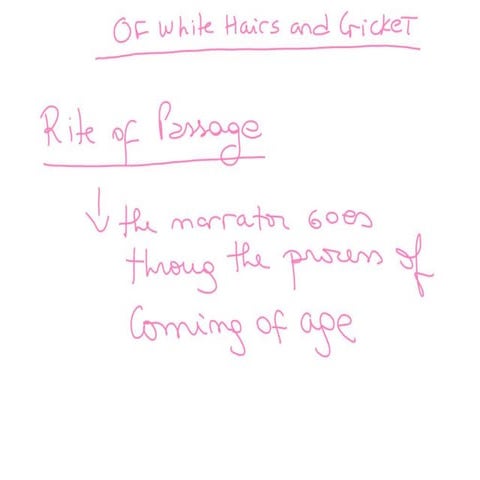 OF White Hairs and Cricket
Rite of Passage
↓ the narrator GOES
throug the process of
Coming of age